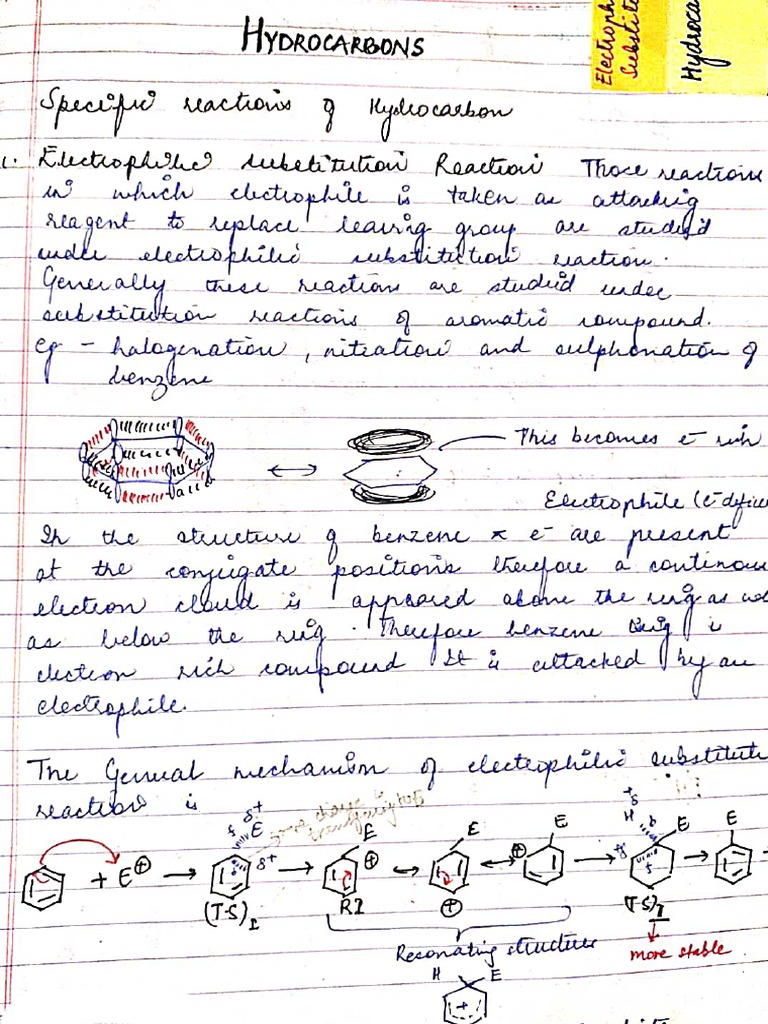 HYDROCARBONS
Electroph
Substitu
Hydroca
Specific reactions of Hydrocarbon
1. Electrophilic substitution Reaction Those reactions
in which electrophile is taken as attacking
reagent to replace leaving group are studied
under electrophilic substitution reaction.
Generally these reactions are studied under
substitution reactions of aromatic compound.
eg - halogenation, nitration and sulphonation of
benzene
This becomes e⁻ rich
Electrophile (e⁻ defice
In the structure of benzene π e⁻ are present
at the conjugate positions therefore a continous
electron cloud is appeared above the ring as wel
as below the ring. Therefore benzene ring is
electron rich compound It is attacked by an
electrophile.
The General mechanism of electrophilic substitute
reaction is
+ E⊕ → (T·S)I → RI ↔ ↔ → (T·S)I →
Resonating structures
more stable
H E
+